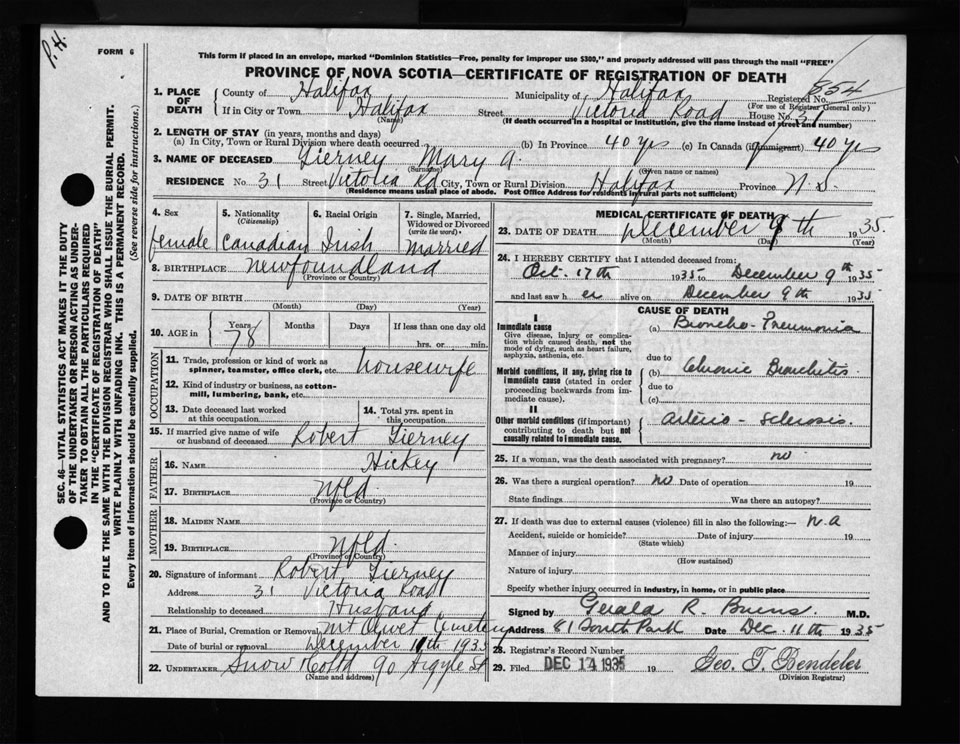 P.H.
FORM 6
This form if placed in an envelope, marked "Dominion Statistics—Free, penalty for improper use $300," and properly addressed will pass through the mail "FREE"
PROVINCE OF NOVA SCOTIA—CERTIFICATE OF REGISTRATION OF DEATH
SEC. 46—VITAL STATISTICS ACT MAKES IT THE DUTY
OF THE UNDERTAKER OR PERSON ACTING AS UNDER-
TAKER TO OBTAIN ALL THE PARTICULARS REQUIRED
IN THE "CERTIFICATE OF REGISTRATION OF DEATH"
AND TO FILE THE SAME WITH THE DIVISION REGISTRAR WHO SHALL ISSUE THE BURIAL PERMIT.
WRITE PLAINLY WITH UNFADING INK. THIS IS A PERMANENT RECORD.
Every item of information should be carefully supplied. (See reverse side for instructions.)
1. PLACE OF DEATH
County of Halifax Municipality of Halifax Registered No. 854
(For use of Registrar General only)
If in City or Town Halifax Street Victoria Road House No. 31
(Name) (If death occurred in a hospital or institution, give the name instead of street and number)
2. LENGTH OF STAY (in years, months and days)
(a) In City, Town or Rural Division where death occurred (b) In Province 40 yrs (c) In Canada (if immigrant) 40 yrs
3. NAME OF DECEASED Tierney Mary A.
(Surname) (Given name or names)
RESIDENCE No. 31 Street Victoria Rd City, Town or Rural Division Halifax Province N.S.
(Residence means usual place of abode. Post Office Address for residents in rural parts not sufficient)
4. Sex female
5. Nationality (Citizenship) Canadian
6. Racial Origin Irish
7. Single, Married, Widowed or Divorced (write the word) Married
8. BIRTHPLACE Newfoundland
(Province or Country)
9. DATE OF BIRTH
(Month) (Day) (Year)
10. AGE in Years 78 Months Days If less than one day old
hrs. or min.
OCCUPATION
11. Trade, profession or kind of work as
spinner, teamster, office clerk, etc. Housewife
12. Kind of industry or business, as cotton-
mill, lumbering, bank, etc.
13. Date deceased last worked at this occupation
14. Total yrs. spent in this occupation
15. If married give name of wife or husband of deceased Robert Tierney
FATHER
16. NAME Hickey
17. BIRTHPLACE Nfld.
(Province or Country)
MOTHER
18. MAIDEN NAME
19. BIRTHPLACE Nfld.
(Province or Country)
20. Signature of informant Robert Tierney
Address 31 Victoria Road
Relationship to deceased Husband
21. Place of Burial, Cremation or Removal Mt Olivet Cemetery
Date of burial or removal December 11th 1935
22. UNDERTAKER Snow & Co Ltd 90 Argyle St
(Name and address)
MEDICAL CERTIFICATE OF DEATH
23. DATE OF DEATH December 9th 1935.
(Month) (Day) (Year)
24. I HEREBY CERTIFY that I attended deceased from:
Oct. 17th 1935 to December 9th 1935
and last saw her alive on December 9th 1935
CAUSE OF DEATH
I
Immediate cause
Give disease, injury or complica-
tion which caused death, not the
mode of dying, such as heart failure,
asphyxia, asthenia, etc.
(a) Broncho-Pneumonia
due to
Morbid conditions, if any, giving rise to
immediate cause (stated in order
proceeding backwards from im-
mediate cause).
(b) Chronic Bronchitis
due to
(c)
II
Other morbid conditions (if important)
contributing to death but not
causally related to immediate cause.
Arterio-sclerosis.
25. If a woman, was the death associated with pregnancy? no
26. Was there a surgical operation? no Date of operation 19
State findings Was there an autopsy?
27. If death was due to external causes (violence) fill in also the following:— N.A
Accident, suicide or homicide? Date of injury 19
(State which)
Manner of injury
(How sustained)
Nature of injury
Specify whether injury occurred in industry, in home, or in public place
Signed by Gerald R. Burns. M.D.
Address 81 South Park Date Dec. 11th 1935
28. Registrar's Record Number
29. Filed DEC 14 1935 19 Geo. T. Bendeler
(Division Registrar)